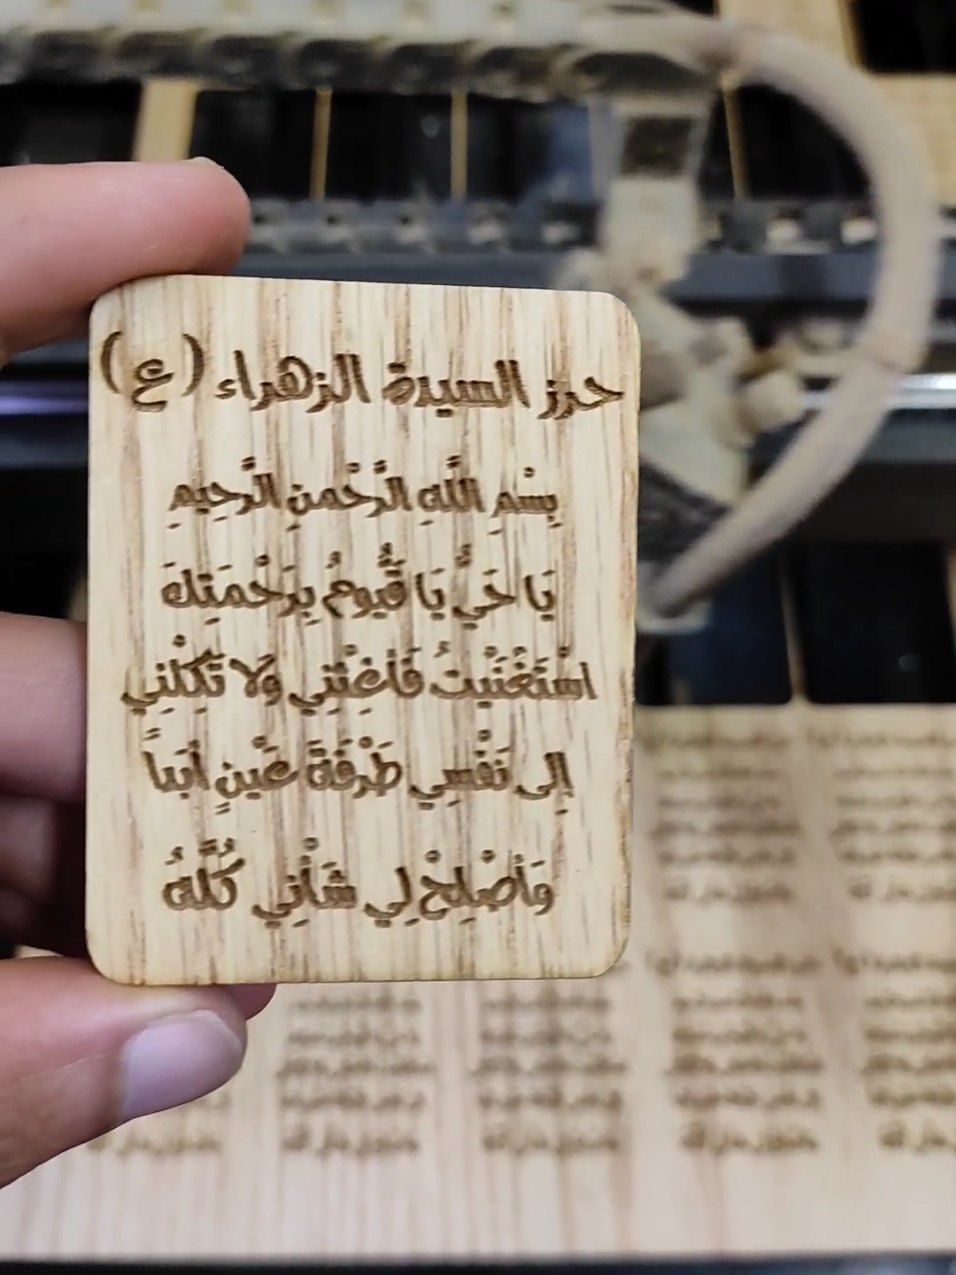 حرز السيدة الزهراء (ع)
بِسْمِ اللَّهِ الرَّحْمنِ الرَّحِيمِ
يَا حَيُّ يَا قَيُّومُ بِرَحْمَتِكَ
اسْتَغَنَيْتُ فَأَغِثْنِي ولا تَكِلْنِي
إِلى نَفْسِي طَرْفَةَ عَيْنٍ أبَداً
وَأَصْلِحْ لِي شَأْنِي كُلَّهُ